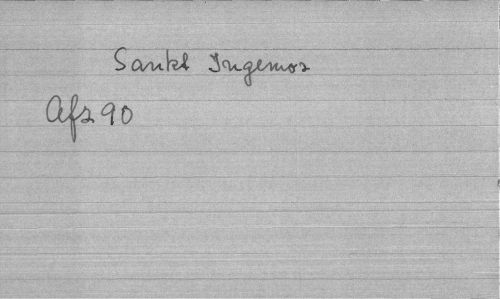 Sankt Ingemor
Afz 90